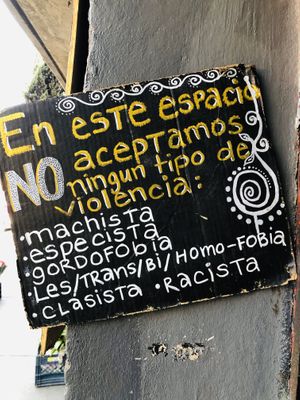 En este espacio
NO aceptamos
ningun tipo de
violencia:
•machista
•especista
•gordofobia
•Les/Trans/Bi/Homo-Fobia
•Clasista •Racista